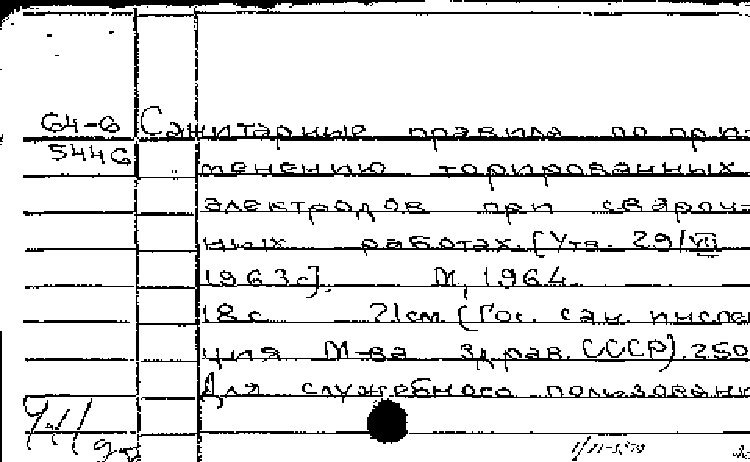 64-8 Санитарные правила по при-
5446 менению торированных
электродов при свароч-
ных работах. [Утв. 29/VII
1963г]. М, 1964.
18с 21см. (Гос. сан. инспек
ция М-ва здрав. СССР). 250
Для служебного пользовани